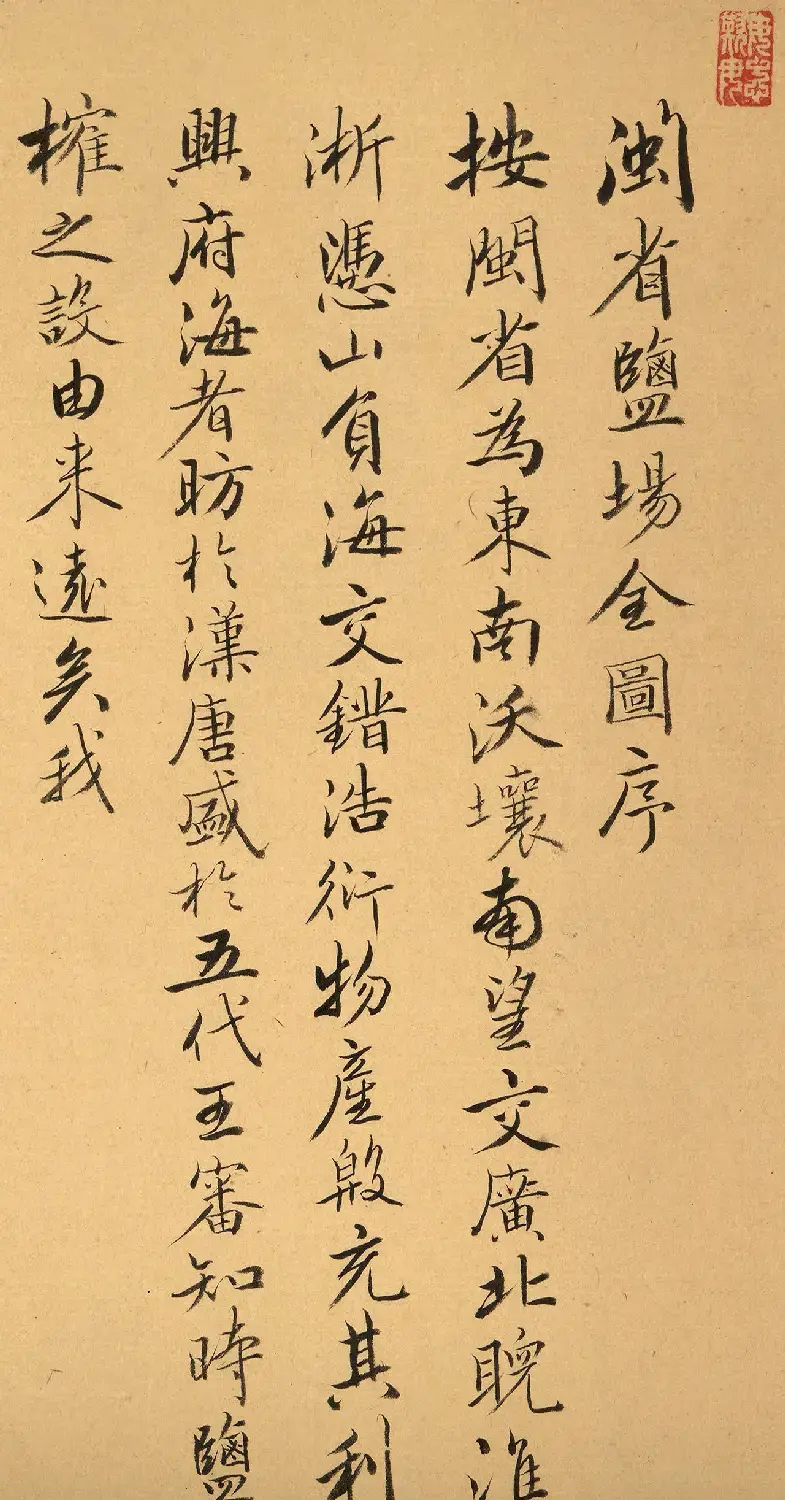 闽省鹽場全圖序
按閩省為東南沃壤南望交廣北睨淮
淅憑山負海交錯浩衍物產殷充其利
興府海者昉於漢唐盛於五代王審知時鹽
榷之設由来遠矣我